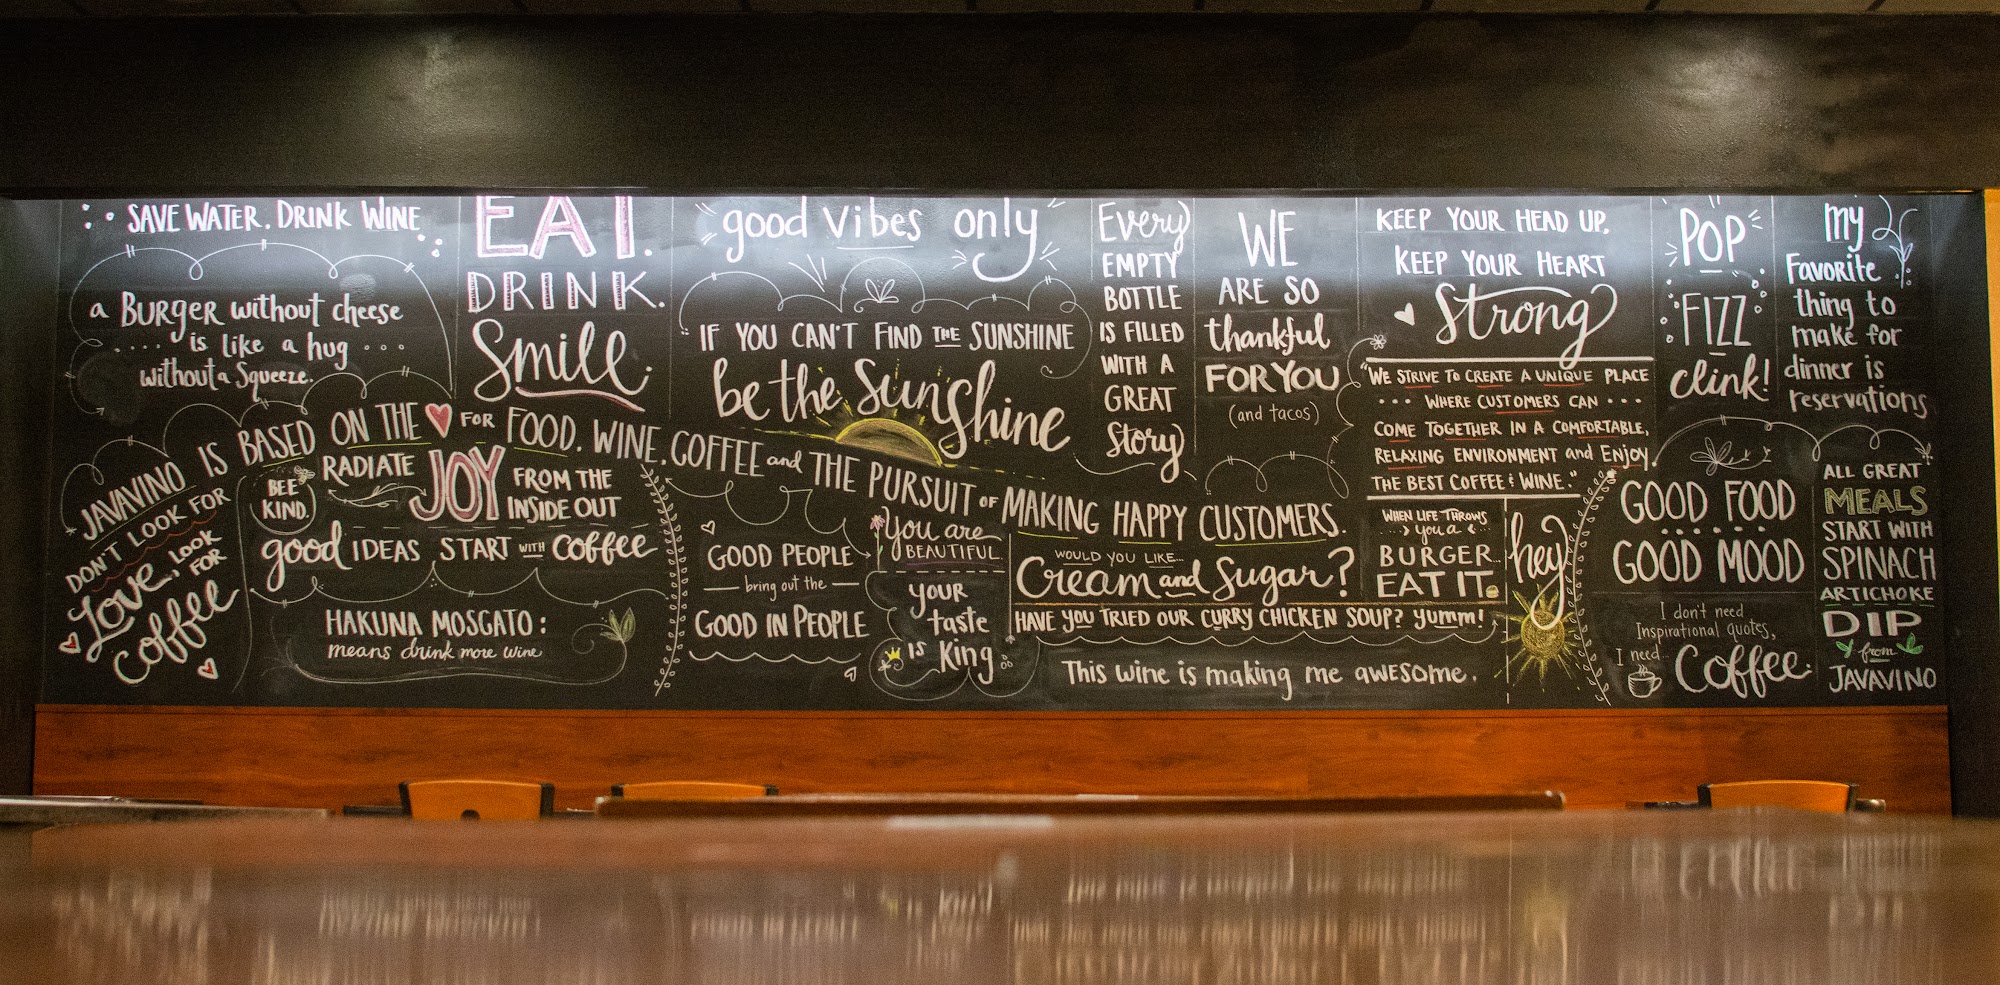 SAVE WATER. DRINK WINE
a BURGER without cheese
is like a hug
without a Squeeze.
EAT.
DRINK.
Smile.
good vibes only
IF YOU CAN'T FIND THE SUNSHINE
be the Sunshine
Every
EMPTY
BOTTLE
IS FILLED
WITH A
GREAT
Story
WE
ARE SO
thankful
FOR YOU
(and tacos)
KEEP YOUR HEAD UP.
KEEP YOUR HEART
Strong
"WE STRIVE TO CREATE A UNIQUE PLACE
WHERE CUSTOMERS CAN
COME TOGETHER IN A COMFORTABLE,
RELAXING ENVIRONMENT and ENJOY
THE BEST COFFEE & WINE."
POP
FIZZ
clink!
my
Favorite
thing to
make for
dinner is
reservations
JAVAVINO IS BASED ON THE ♥ FOR FOOD. WINE. COFFEE and THE PURSUIT OF MAKING HAPPY CUSTOMERS.
DON'T LOOK FOR
Love, LOOK
FOR
Coffee
BEE
KIND.
RADIATE JOY FROM THE
INSIDE OUT
good IDEAS START WITH coffee
HAKUNA MOSCATO:
means drink more wine
GOOD PEOPLE
bring out the
GOOD IN PEOPLE
You are
BEAUTIFUL.
YOUR
taste
IS King
WOULD YOU LIKE...
Cream and Sugar?
HAVE you TRIED OUR CURRY CHICKEN SOUP? yumm!
This wine is making me awesome.
WHEN LIFE THROWS
you a
BURGER...
EAT IT
hey
GOOD FOOD
GOOD MOOD
I don't need
Inspirational quotes,
I need...
Coffee.
ALL GREAT
MEALS
START WITH
SPINACH
ARTICHOKE
DIP
from
JAVAVINO